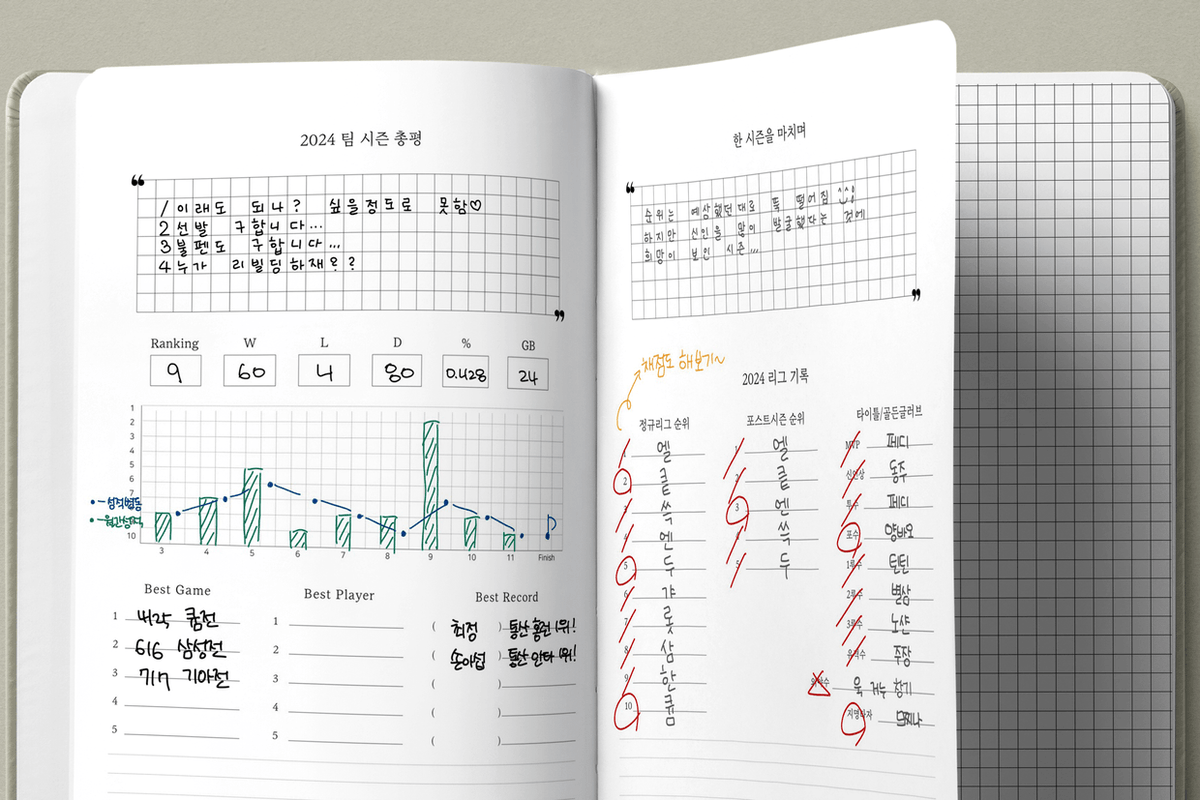 2024 팀 시즌 총평
❝
1 이래도 되나? 싶을정도로 못함♡
2 선발 구합니다...
3 불펜도 구합니다...
4 누가 리빌딩하재요?
❞
Ranking W L D % GB
9 60 4 80 0.428 24
1
2
3
4
5
6
7
10
성적변동
월간성적
3 4 5 6 7 8 9 10 11 Finish
Best Game Best Player Best Record
1 425 쿰전 1 ( 최정 ) 통산 홈런 1위!
2 616 삼성전 2 ( 손아섭 ) 통산 안타 1위!
3 717 기아전 3 ( )
4 4 ( )
5 5 ( )
한 시즌을 마치며
❝
순위는 예상했던대로 뚝 떨어짐
하지만 신인을 많이 발굴했다는 것에
희망이 보인 시즌...
❞
채점도 해보기~
2024 리그 기록
정규리그 순위
1 엘
2 릍
3 쓱
4 엔
5 두
6 갸
7 롯
8 삼
9 한
10 쿰
포스트시즌 순위
1 엘
2 릍
3 엔
4 쓱
5 두
타이틀/골든글러브
MVP 페디
신인상 동주
투수 페디
포수 양바오
1루수 틴틴
2루수 별삼
3루수 노샨
유격수 주장
외야수 욱 거누 창기
지명타자